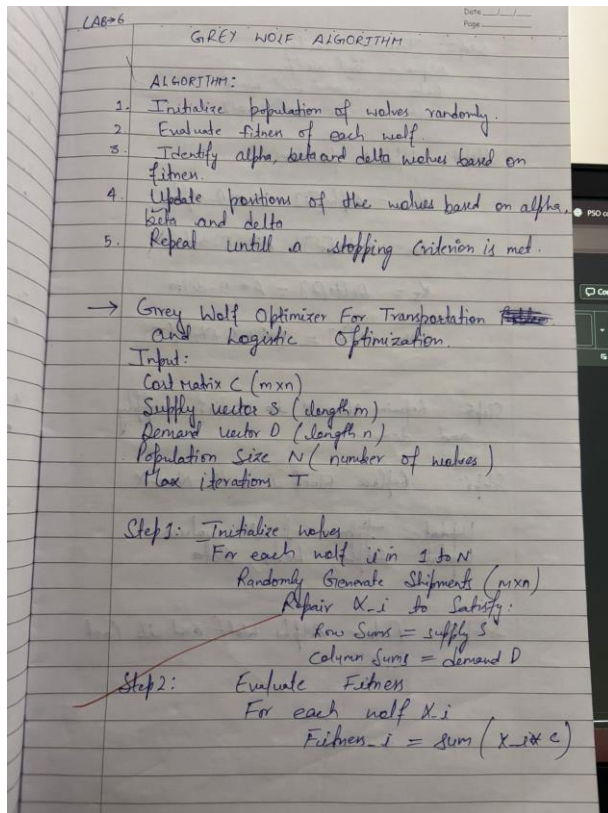 LAB→6
Date __/__/__
Page ____
GREY WOLF ALGORITHM
ALGORITHM:
1. Initialize population of wolves randomly.
2. Evaluate fitness of each wolf.
3. Identify alpha, beta and delta wolves based on
fitness.
4. Update positions of the wolves based on alpha,
beta and delta
5. Repeat untill a stopping criterion is met.
→ Grey Wolf Optimizer For Transportation
and Logistic Optimization.
Input:
Cost Matrix C (m×n)
Supply vector S (length m)
Demand vector D (length n)
Population Size N (number of wolves)
Max iterations T
Step1: Initialize wolves
For each wolf i in 1 to N
Randomly Generate Shipments (m×n)
Repair X_i to Satisfy:
Row Sums = supply S
Column Sums = demand D
Step2: Evaluate Fitness
For each wolf X_i
Fitness_i = sum (X_i * C)
PSO